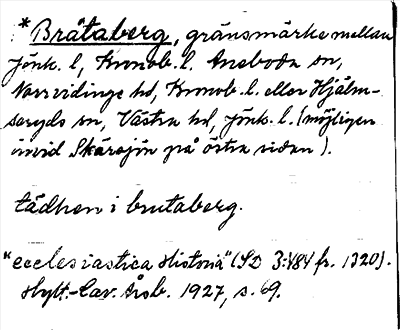 * Bråtaberg, gränsmärke mellan
Jönk. l, Kronob. l. Aneboda sn,
Norrvidinge hd, Kronob. l. eller Hjälm-
seryds sn, Västra hd, Jönk. l. (möjligen
invid Skärsjön på östra sidan).
tädhen i brutaberg.
"ecclesiastica Historia" (SD 3:484 fr. 1320).
Hylt.-Cav. Årsb. 1927, s. 69.